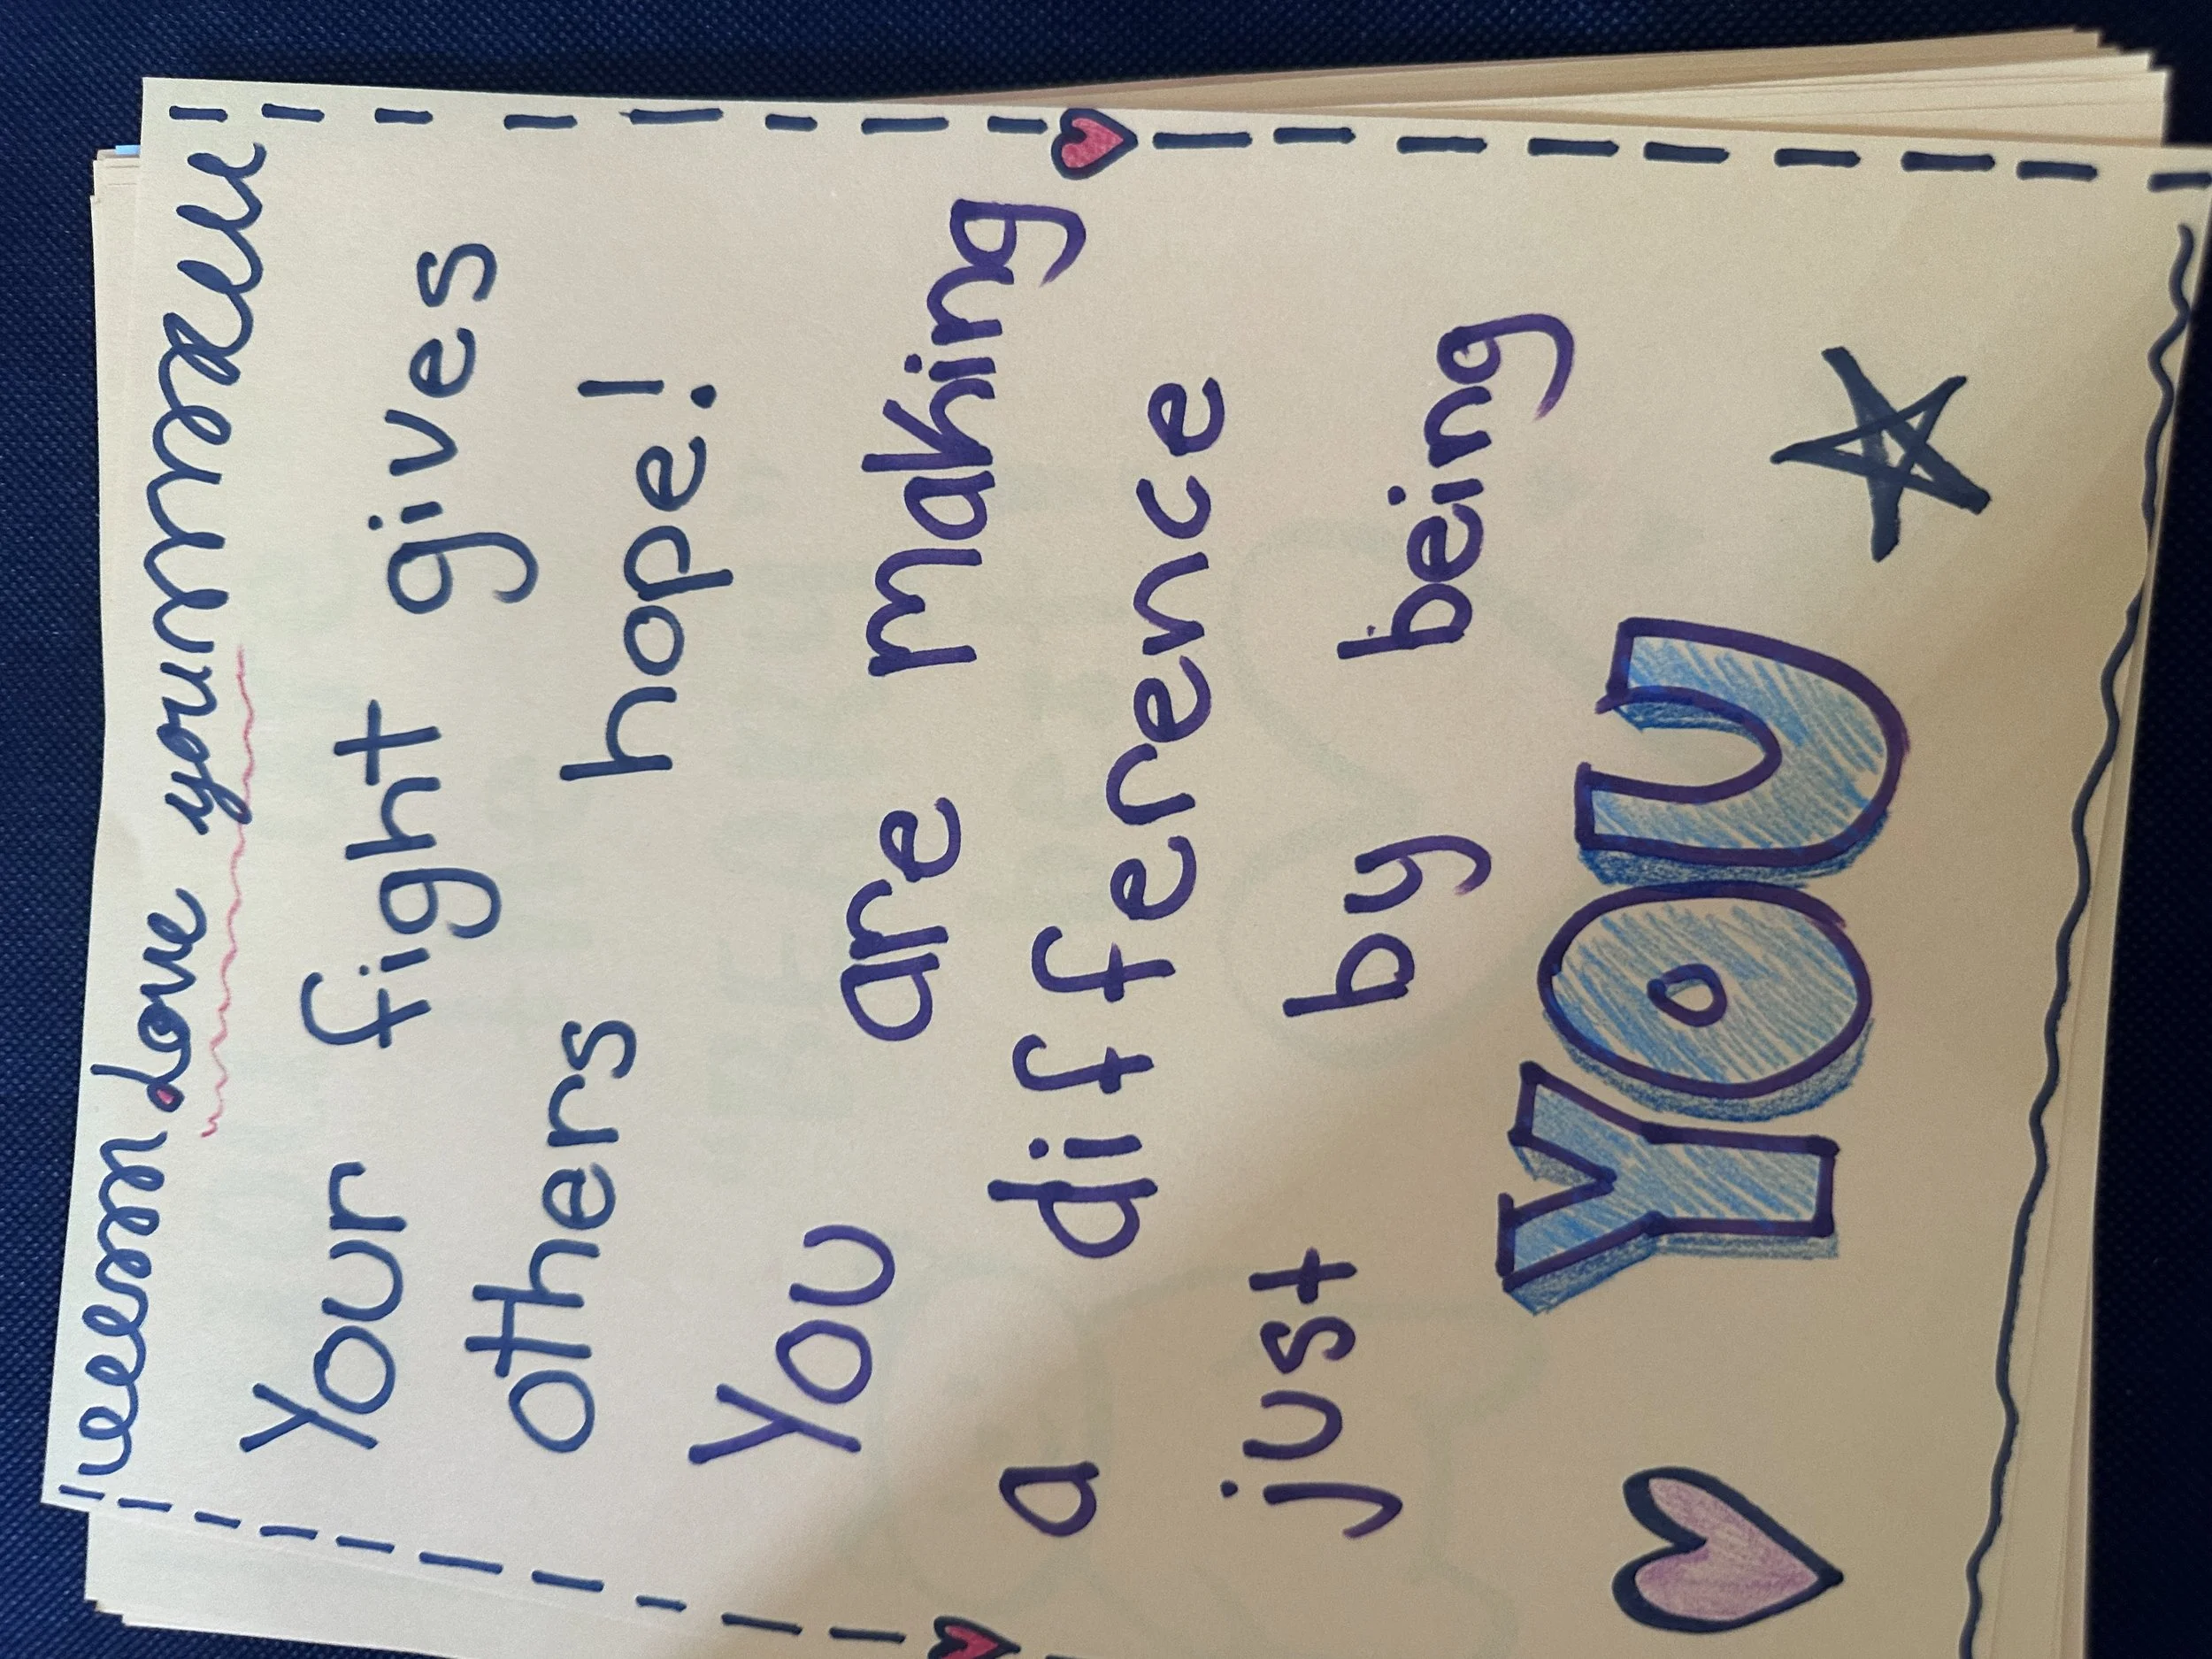 Love your
Your fight gives
others hope!
You are making
a difference
just by being
YOU